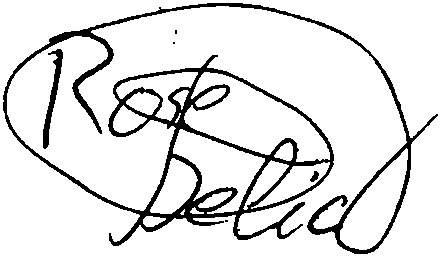 Rose
Delia